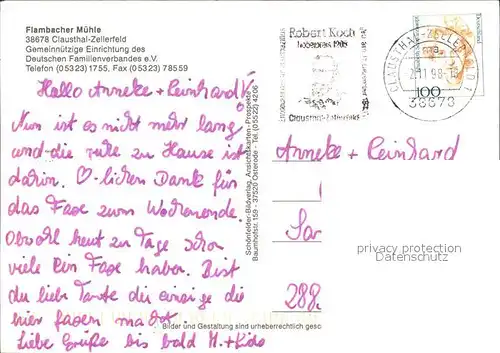 Flambacher Mühle
38678 Clausthal-Zellerfeld
Gemeinnützige Einrichtung des
Deutschen Familienverbandes e.V.
Telefon (05323) 1755, Fax (05323) 78559
Hallo Anneke + Reinhard!
Nun ist es nicht mehr lang
und die ruhe zu Hause ist
dahin. ♡-lichen Dank für
das Faxe zum Wochenende.
Obwohl heut zu Tage schon
viele Ein Faxe haben. Bist
du liebe Tante die einzige die
hier faxen macht.
Liebe Grüße bis bald M. + Kids
Schönfelder-Bildverlag, Ansichtskarten - Prospekte
Baumhofstr. 159 - 37520 Osterode - Tel. (05522) 4206
Bilder und Gestaltung sind urheberrechtlich gesc
Robert Koch
Clausthal-Zellerfeld
CLAUSTHAL-ZELLERFELD 1
a
11.98
38678
100
Deutschland
Anneke + Reinhard
Sar
288
privacy protection
Datenschutz